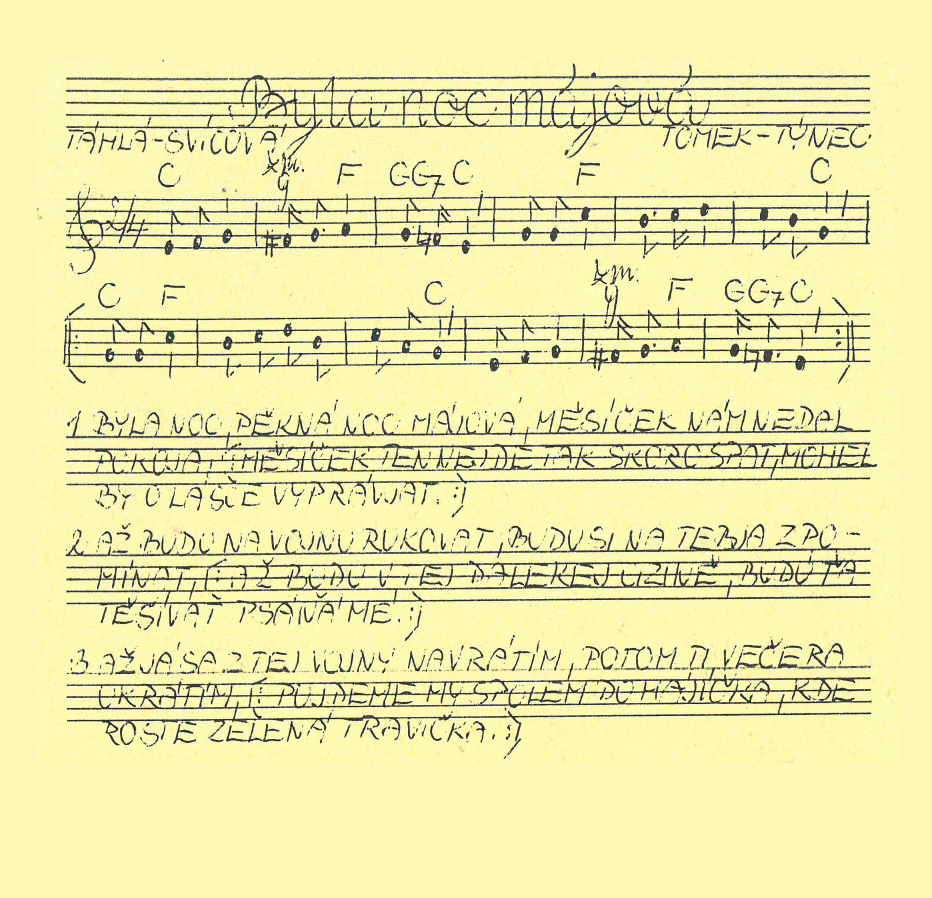 Byla noc májová
TÁHLÁ-SVÍCOVÁ TOMEK-TÝNEC
2/4
C F G G7 C F C
C F C F G G7 C
1 BYLA NOC, PĚKNÁ NOC MÁJOVÁ, MĚSÍČEK NÁM NEDAL
POKOJA, [: MĚSÍČEK TEN NEJDE TAK SKORO SPAT, MOHEL
BY O LÁSCE VYPRÁVJAT. :]
2. AŽ BUDU NA VOJNU RUKOVAT, BUDU SI NA TEBJA ZPO-
MÍNAT, [: AŽ BUDU V TEJ DALEKEJ CIZINĚ, BUDÚ ŤA
TĚŠÍVAŤ PSÁŇÁ MÉ. :]
3. AŽ JÁ SA Z TEJ VOJNY NAVRÁTÍM, POTOM TI VEČERA
UKRÁTÍM, [: PŮJDEME MY SPOLEM DO HÁJÍČKA, KDE
ROSTE ZELENÁ TRAVIČKA. :]